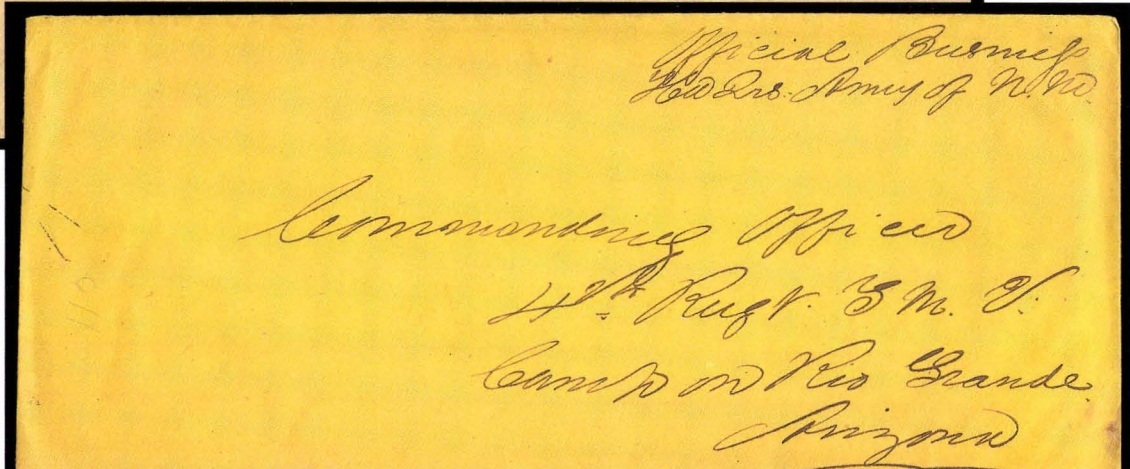 Official Business
Hd Qrs. Army of N. M.
Commanding Officer
4th Regt. T. M. V.
Camp on Rio Grande
Arizona